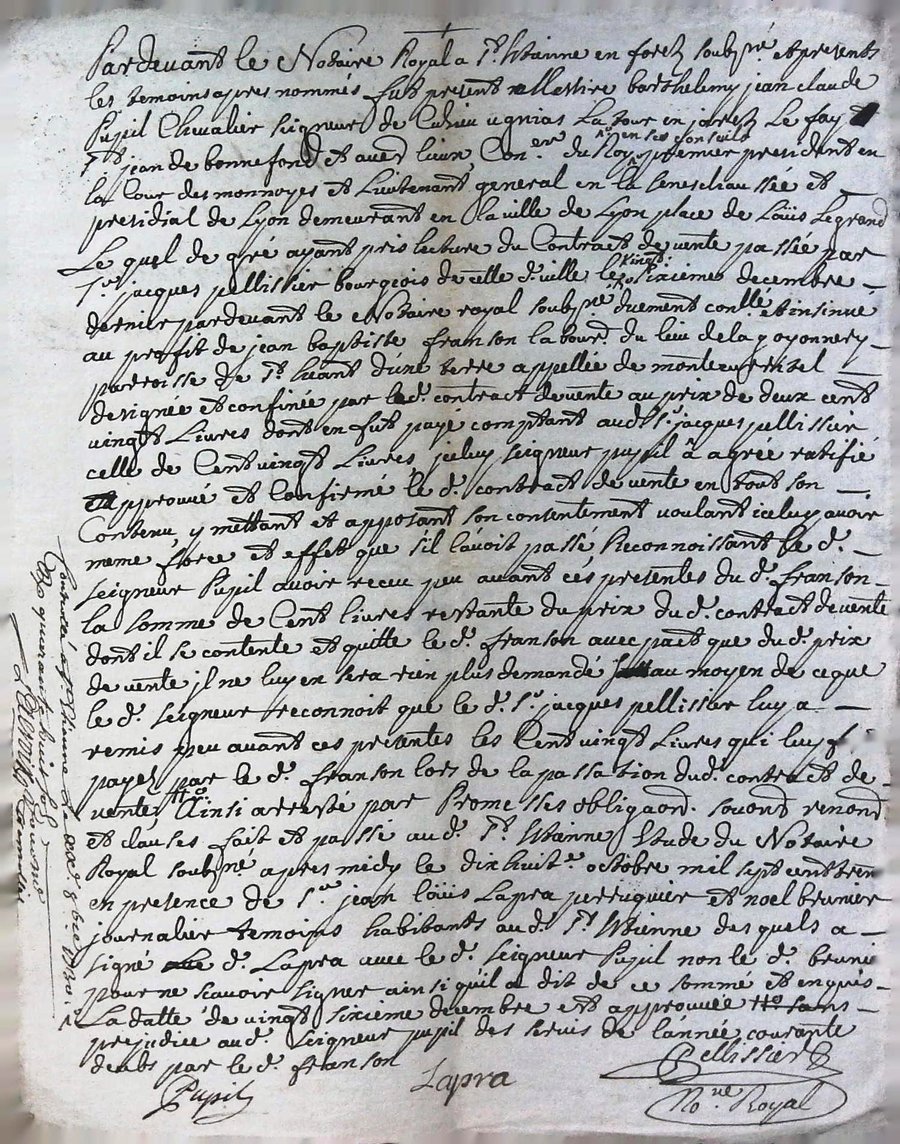 Pardevant le Notaire Royal a St. Etienne en forez soubne. et presents
les temoins apres nommés fut present Messire barthelemy jean claude
Pupil Chevalier seigneur de Cuzieu ugnias La tour en jarest Le fay
St. jean de bonnefond et autres lieux Coner. du Roy en ses conseils premier president en
la Cour des monnoyes et Lieutenant general en la Seneschaussée et
presidial de Lyon demeurant en la ville de Lyon place de Loüis Legrand
Le quel de gré ayant pris lecture du Contract de vente passée par
Sr. jacques pellissier bourgeois de cette d. ville le vingt Sixieme decembre
dernier pardevant le Notaire royal soubne. duement conllé. et insinué
au proffit de jean baptiste franson labourd. du lieu de la
parroisse de St. d'une terre appellée de
designée et confinée par led. contract de vente au prix de deux cent
vingt Livres dont en fut payé comptant aud. Sr. jacques pellissier
celle de Cent vingt Livres jceluy seigneur pupil à agréé ratifié
approuvé et Confirmé le d. contract de vente en tout son
Contenu, y mettant et apposant son consentement voulant iceluy avoir
meme force et effet que s'il l'avoit passé Reconnoissant le d.
seigneur Pupil avoir receu peu avant ces presentes du d. franson
la somme de Cent livres restante du prix dud. contract de vente
dont il se contente et quitte le d. franson avec pact que du d. prix
de vente jl ne luy en sera rien plus demandé au moyen de ce que
le d. seigneur reconnoit que le d. Sr. jacques pellissier luy a
remis peu avant ces presentes les Cent vingt Livres qui luy f.
payés par le d. franson lors de la passation dud. contract de
vente Ainsi arresté par Promesses obligaond. renond
et clauses fait et passé aud. St. Etienne Etude du Notaire
Royal soubne. apres midy le dix huite. octobre mil sept cent tren
en presence de Sr. jean loüis Lapra perruquier et noel brunier
journalier temoins habitants aud. St. Etienne desquels a
signé le d. Lapra avec le d. seigneur Pupil non le d. bruni
pour ne scavoir signer ainsi qu'il a dit de ce sommé et enquis
La datte de vingt sixieme decembre est approuvée sans
prejudice aud. seigneur pupil des servis de l'année courante
deubs par le d. franson
Pellissier
Pupil
Lapra
Nore. Royal
Controllé a St. Etienne le 8bre